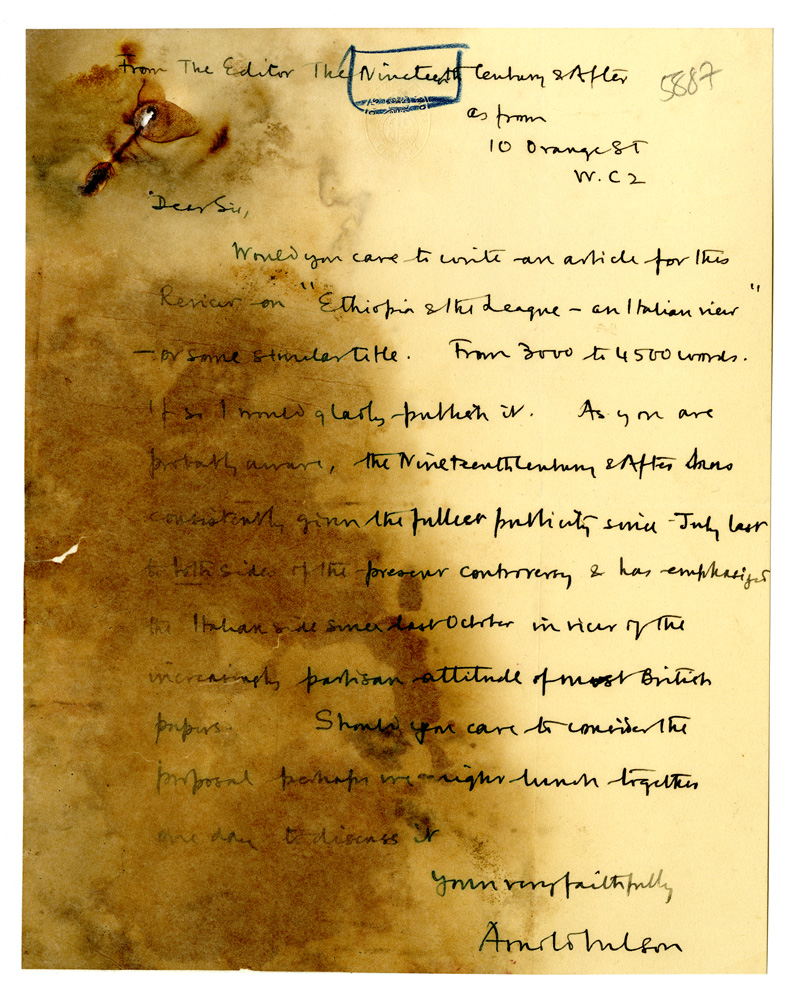 From The Editor The Nineteenth Century & After
5887
as from
10 Orange ST
W.C 2
Dear Sir,
Would you care to write an article for this
Review on "Ethiopia & the League - an Italian view"
- or some similar title. From 3000 to 4500 words.
If so I would gladly publish it. As you are
probably aware, the Nineteenth Century & After has
consistently given the fullest publicity since July last
to both sides of the present controversy & has emphasized
the Italian side since last October in view of the
increasingly partisan attitude of most British
papers. Should you care to consider the
proposal perhaps we might lunch together
one day to discuss it
Yours very faithfully
Arnold Wilson